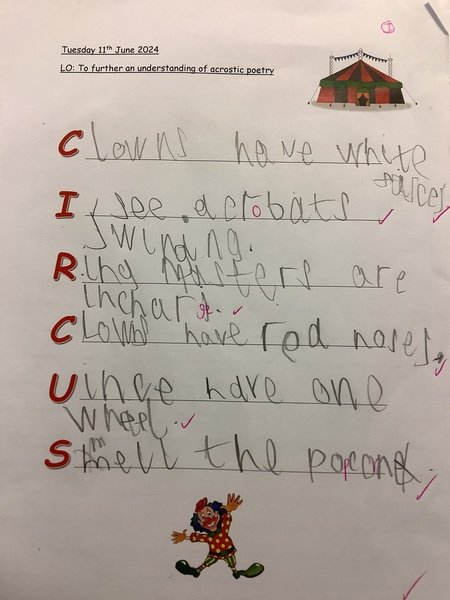 Tuesday 11th June 2024
LO: To further an understanding of acrostic poetry
Clowns have white
I see acrobats
swinging.
Ring Masters are
incharge.
Clowns have red noses.
Uince have one
wheel.
Smell the popcorn.